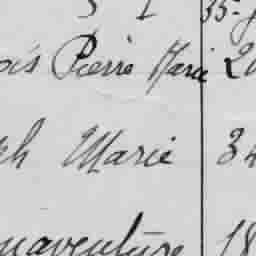 35-
ois Pierre Marie 2
ph Marie 34
naventure 18